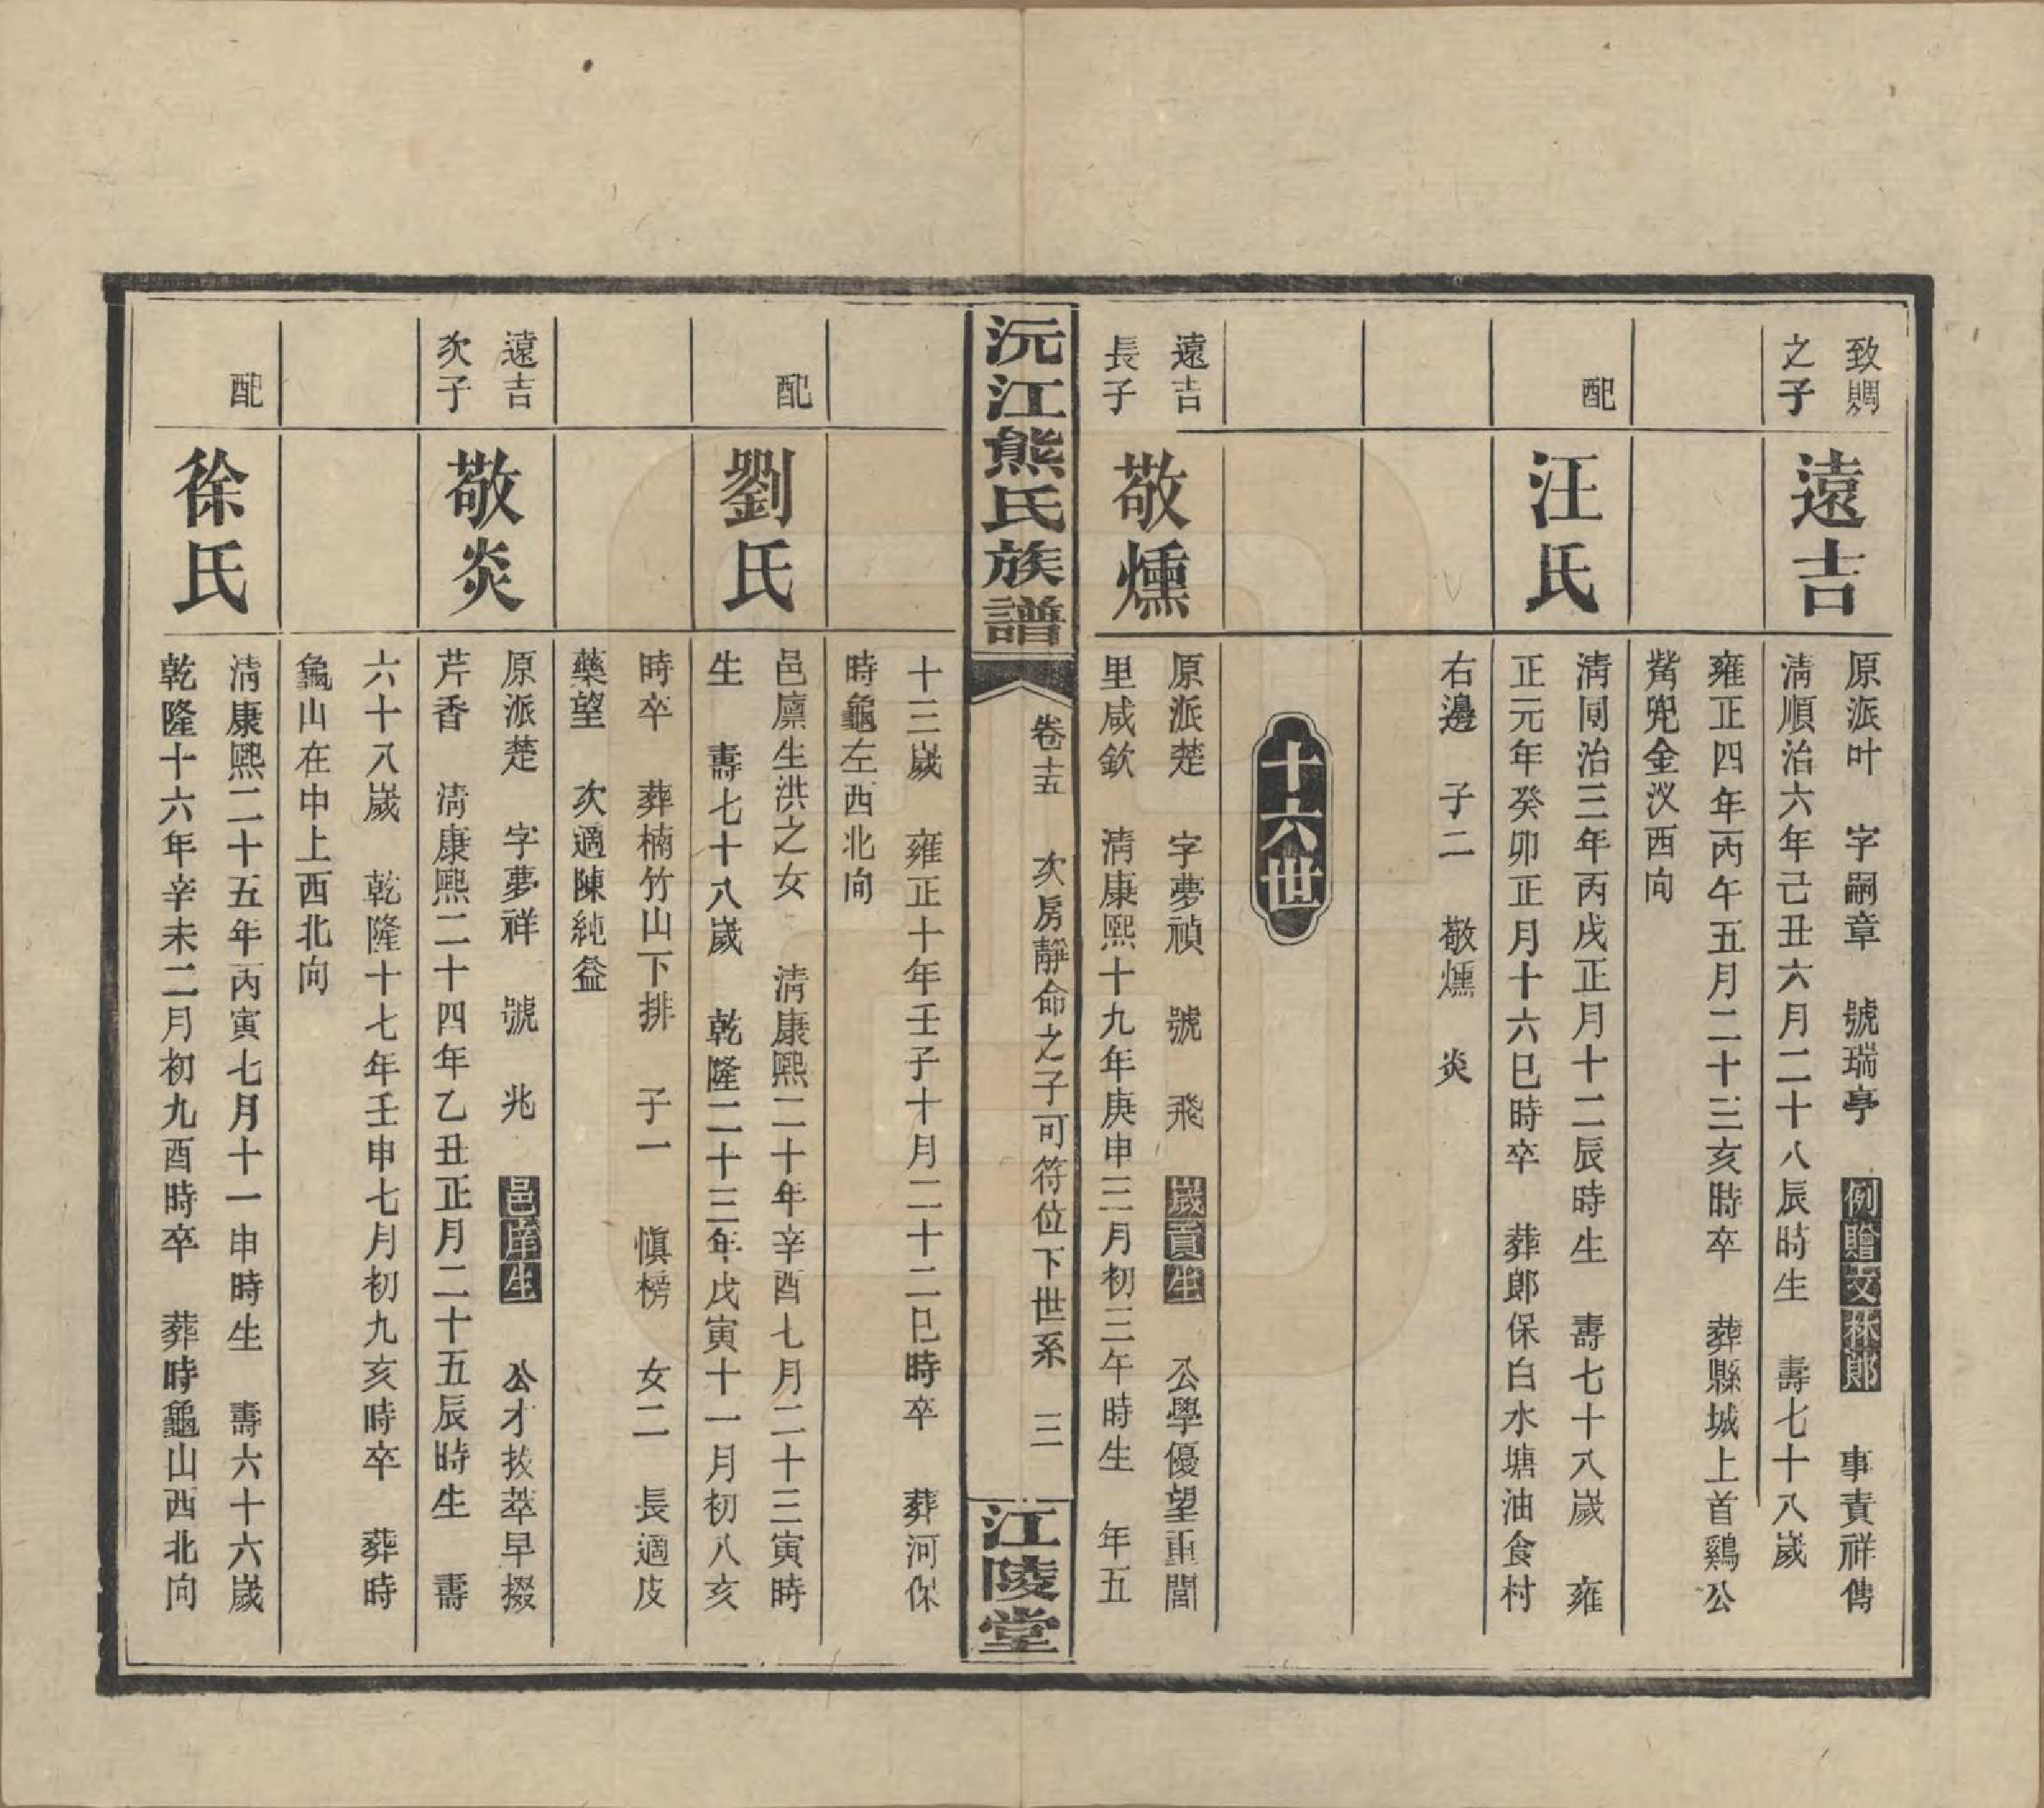 致賙
之子
遠吉
原派叶　字嗣章　號瑞亭　例贈文林郎　事責祥傳
淸順治六年己丑六月二十八辰時生　壽七十八歲
雍正四年丙午五月二十三亥時卒　葬縣城上首鷄公
觜兜金汊西向
配
汪氏
淸同治三年丙戌正月十二辰時生　壽七十八歲　雍
正元年癸卯正月十六巳時卒　葬郎保白水塘油食村
右邊　子二　敬燻　炎
十六世
遠吉
長子
敬燻
原派楚　字夢禎　號　飛　歲貢生　公學優望重閭
里咸欽　淸康熙十九年庚申三月初三午時生　年五
沅江熊氏族譜
卷十五　次房靜命之子可符位下世系　三
江陵堂
十三歲　雍正十年壬子十月二十二巳時卒　葬河保
時龜左西北向
配
劉氏
邑廩生洪之女　淸康熙二十年辛酉七月二十三寅時
生　壽七十八歲　乾隆二十三年戊寅十一月初八亥
時卒　葬楠竹山下排　子一　愼榜　女二　長適皮
藥望　次適陳純益
遠吉
次子
敬炎
原派楚　字夢祥　號　兆　邑庠生　公才拔萃早掇
芹香　淸康熙二十四年乙丑正月二十五辰時生　壽
六十八歲　乾隆十七年壬申七月初九亥時卒　葬時
龜山在中上西北向
配
徐氏
淸康熙二十五年丙寅七月十一申時生　壽六十六歲
乾隆十六年辛未二月初九酉時卒　葬時龜山西北向